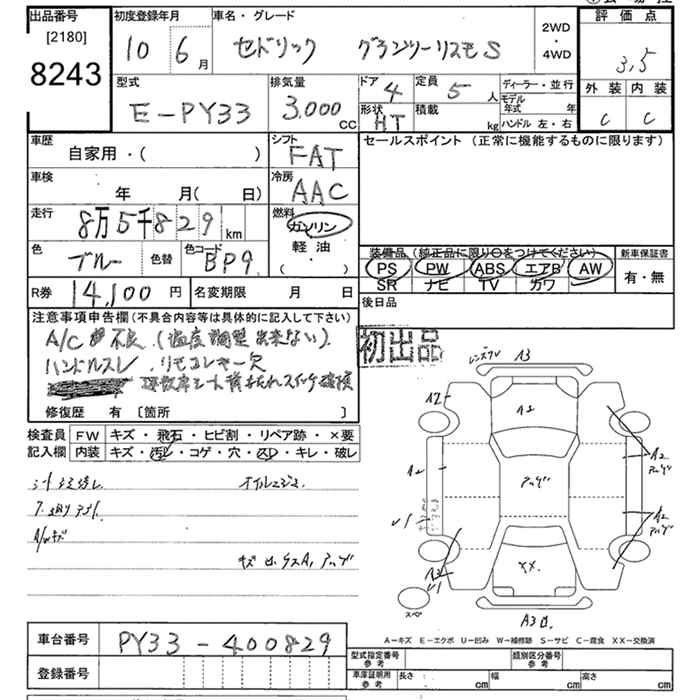 出品番号
[2180]
8243
初度登録年月
10 6 月
車名・グレード
セドリック グランツーリスモS
2WD
・
4WD
評価点
3.5
外装 内装
C C
型式
E-PY33
排気量
3.000 CC
ドア 4
定員 5 人
形状 HT
積載 kg
ディーラー・並行
モデル年式 年
ハンドル 左・右
車歴
自家用・( )
シフト
FAT
セールスポイント (正常に機能するものに限ります)
車検
年 月( 日)
冷房
AAC
走行
8万5千829km
燃料
ガソリン
軽油
・( )
色 ブルー
色替
色コード BP9
装備品 (純正品に限り○をつけてください)
PS PW ABS エアB AW
SR ナビ TV カワ
新車保証書
有・無
R券 14,100 円
名変期限 月 日
後日品
注意事項申告欄 (不具合内容等は具体的に記入して下さい)
A/C 不良 (温度調整出来ない)
ハンドルスレ リモコンキー欠
シート背もたれスイッチ破損
初出品
修復歴 有 [箇所 ]
検査員 記入欄
FW キズ・飛石・ヒビ割・リペア跡・×要
内装 キズ・汚レ・コゲ・穴・スレ・キレ・破レ
A3
A2
A2
A2
A2
XX
スペ
A-キズ E-エクボ U-凹み W-補修跡 S-サビ C-腐食 XX-交換済
車台番号 PY33-400829
登録番号
型式指定番号 参考
類別区分番号 参考
車庫証明用 参考
長さ cm 幅 cm 高さ cm